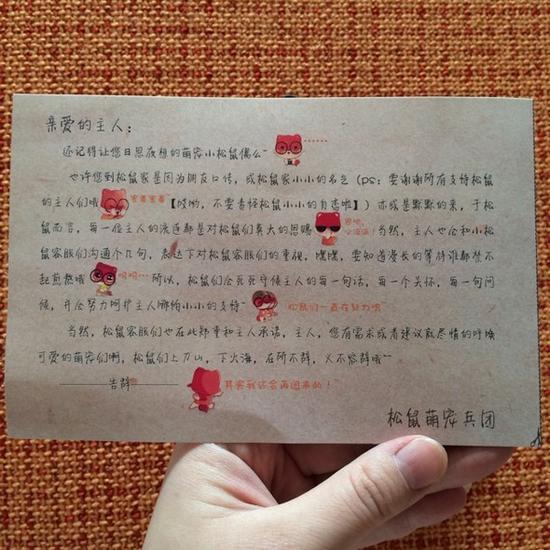 亲爱的主人：
还记得让您日思夜想的萌宠小松鼠偶么~ ......
也许您到松鼠家是因为朋友口传，或松鼠家小小的名气（ps：要谢谢所有支持松鼠
的主人们哦 害羞害羞【哎哟，不要责怪松鼠小小的自恋啦】）亦或是默默的来，于松
鼠而言，每一位主人的流连都是对松鼠们莫大的恩赐 当然，主人也会和小松
鼠客服们沟通个几句，表达下对松鼠客服们的重视，嘿嘿，要知道漫长的等待谁都禁不
起煎熬哦 呵呵... 所以，松鼠们会死死守候主人的每一句话，每一个关怀，每一句问
候，并会努力呵护主人赐给小小的支持~ 松鼠们一直在努力哦
当然，松鼠客服们也在此郑重和主人承诺，主人，您有需求或者建议就尽情的呼唤
可爱的萌宠们啊，松鼠们上刀山，下火海，在所不辞，义不容辞哦~
告辞 其实我还会再回来的！
松鼠萌宠兵团